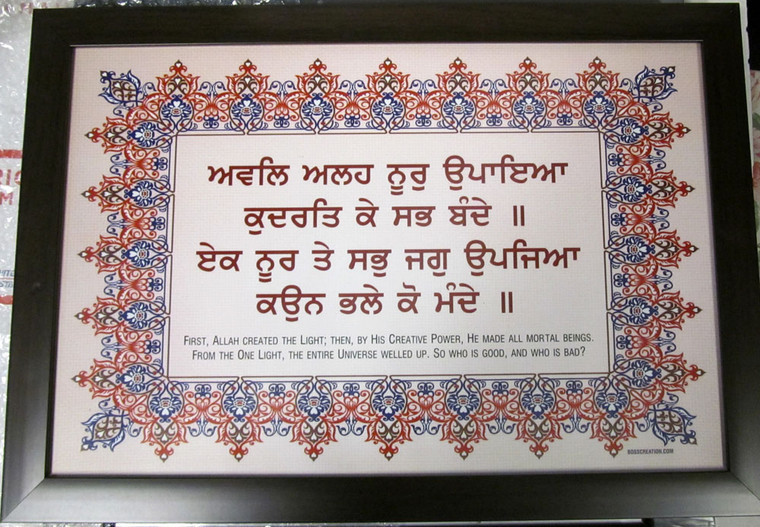 ਅਵਲਿ ਅਲਹ ਨੂਰੁ ਉਪਾਇਆ
ਕੁਦਰਤਿ ਕੇ ਸਭ ਬੰਦੇ ॥
ਏਕ ਨੂਰ ਤੇ ਸਭੁ ਜਗੁ ਉਪਜਿਆ
ਕਉਨ ਭਲੇ ਕੋ ਮੰਦੇ ॥
FIRST, ALLAH CREATED THE LIGHT; THEN, BY HIS CREATIVE POWER, HE MADE ALL MORTAL BEINGS.
FROM THE ONE LIGHT, THE ENTIRE UNIVERSE WELLED UP. SO WHO IS GOOD, AND WHO IS BAD?